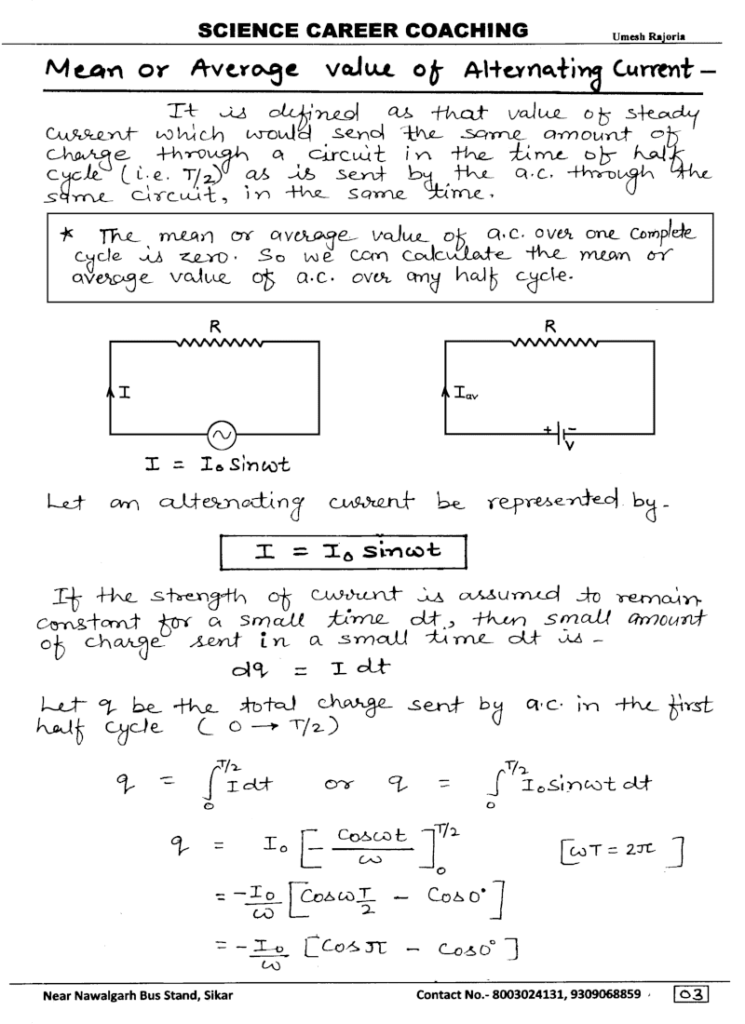 SCIENCE CAREER COACHING
Umesh Rajoria
Mean or Average value of Alternating Current –
It is defined as that value of steady
current which would send the same amount of
charge through a circuit in the time of half
cycle (i.e. T/2) as is sent by the a.c. through the
same circuit, in the same time.
* The mean or average value of a.c. over one complete
cycle is zero. So we can calculate the mean or
average value of a.c. over any half cycle.
R
R
I
I_av
+ –
V
I = I₀ sinωt
Let an alternating current be represented by -
I = I₀ sinωt
If the strength of current is assumed to remain
constant for a small time dt, then small amount
of charge sent in a small time dt is -
dq = I dt
Let q be the total charge sent by a.c. in the first
half cycle ( 0 → T/2 )
q = ∫₀^{T/2} I dt or q = ∫₀^{T/2} I₀ sinωt dt
q = I₀ [ - cosωt / ω ]₀^{T/2} [ ωT = 2π ]
= -I₀/ω [ Cosω T/2 - Cos0° ]
= - I₀/ω [ Cos π - cos0° ]
Near Nawalgarh Bus Stand, Sikar
Contact No.- 8003024131, 9309068859
03